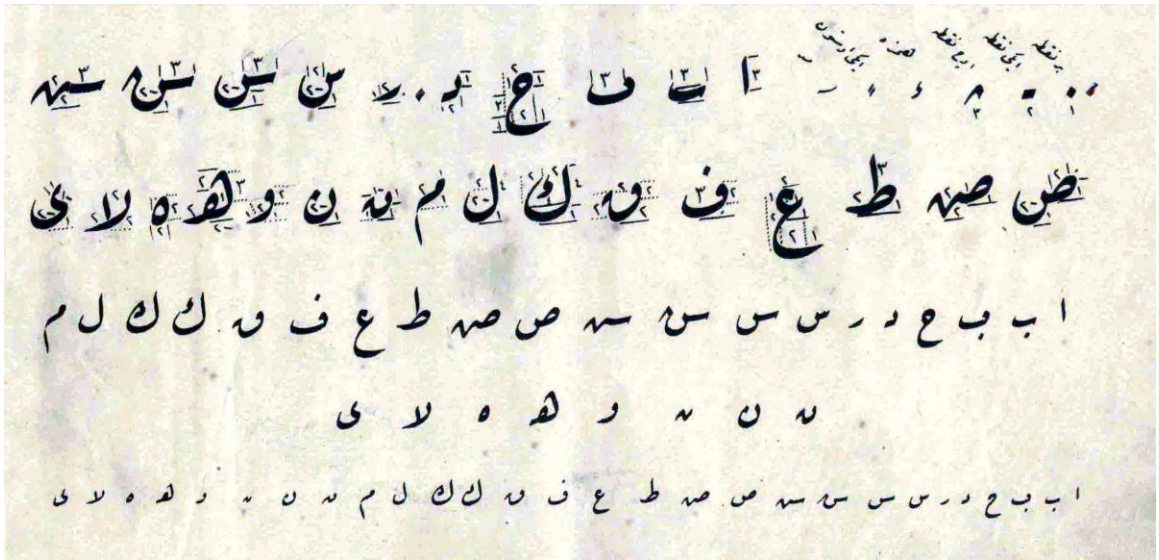 بر نقطه ایکی نقطه اوچ نقطه
ا ب ب ح د ر س س س س
ص ص ط ع ف ق ك ل م ن ن و ه ه لا ى
ا ب ب ح د ر س س س س ص ص ط ع ف ق ك ك ل م
ن ن ن و ه ه لا ى
ا ب ب ح د ر س س س س ص ص ط ع ف ق ك ك ل م ن ن ن و ه ه لا ى